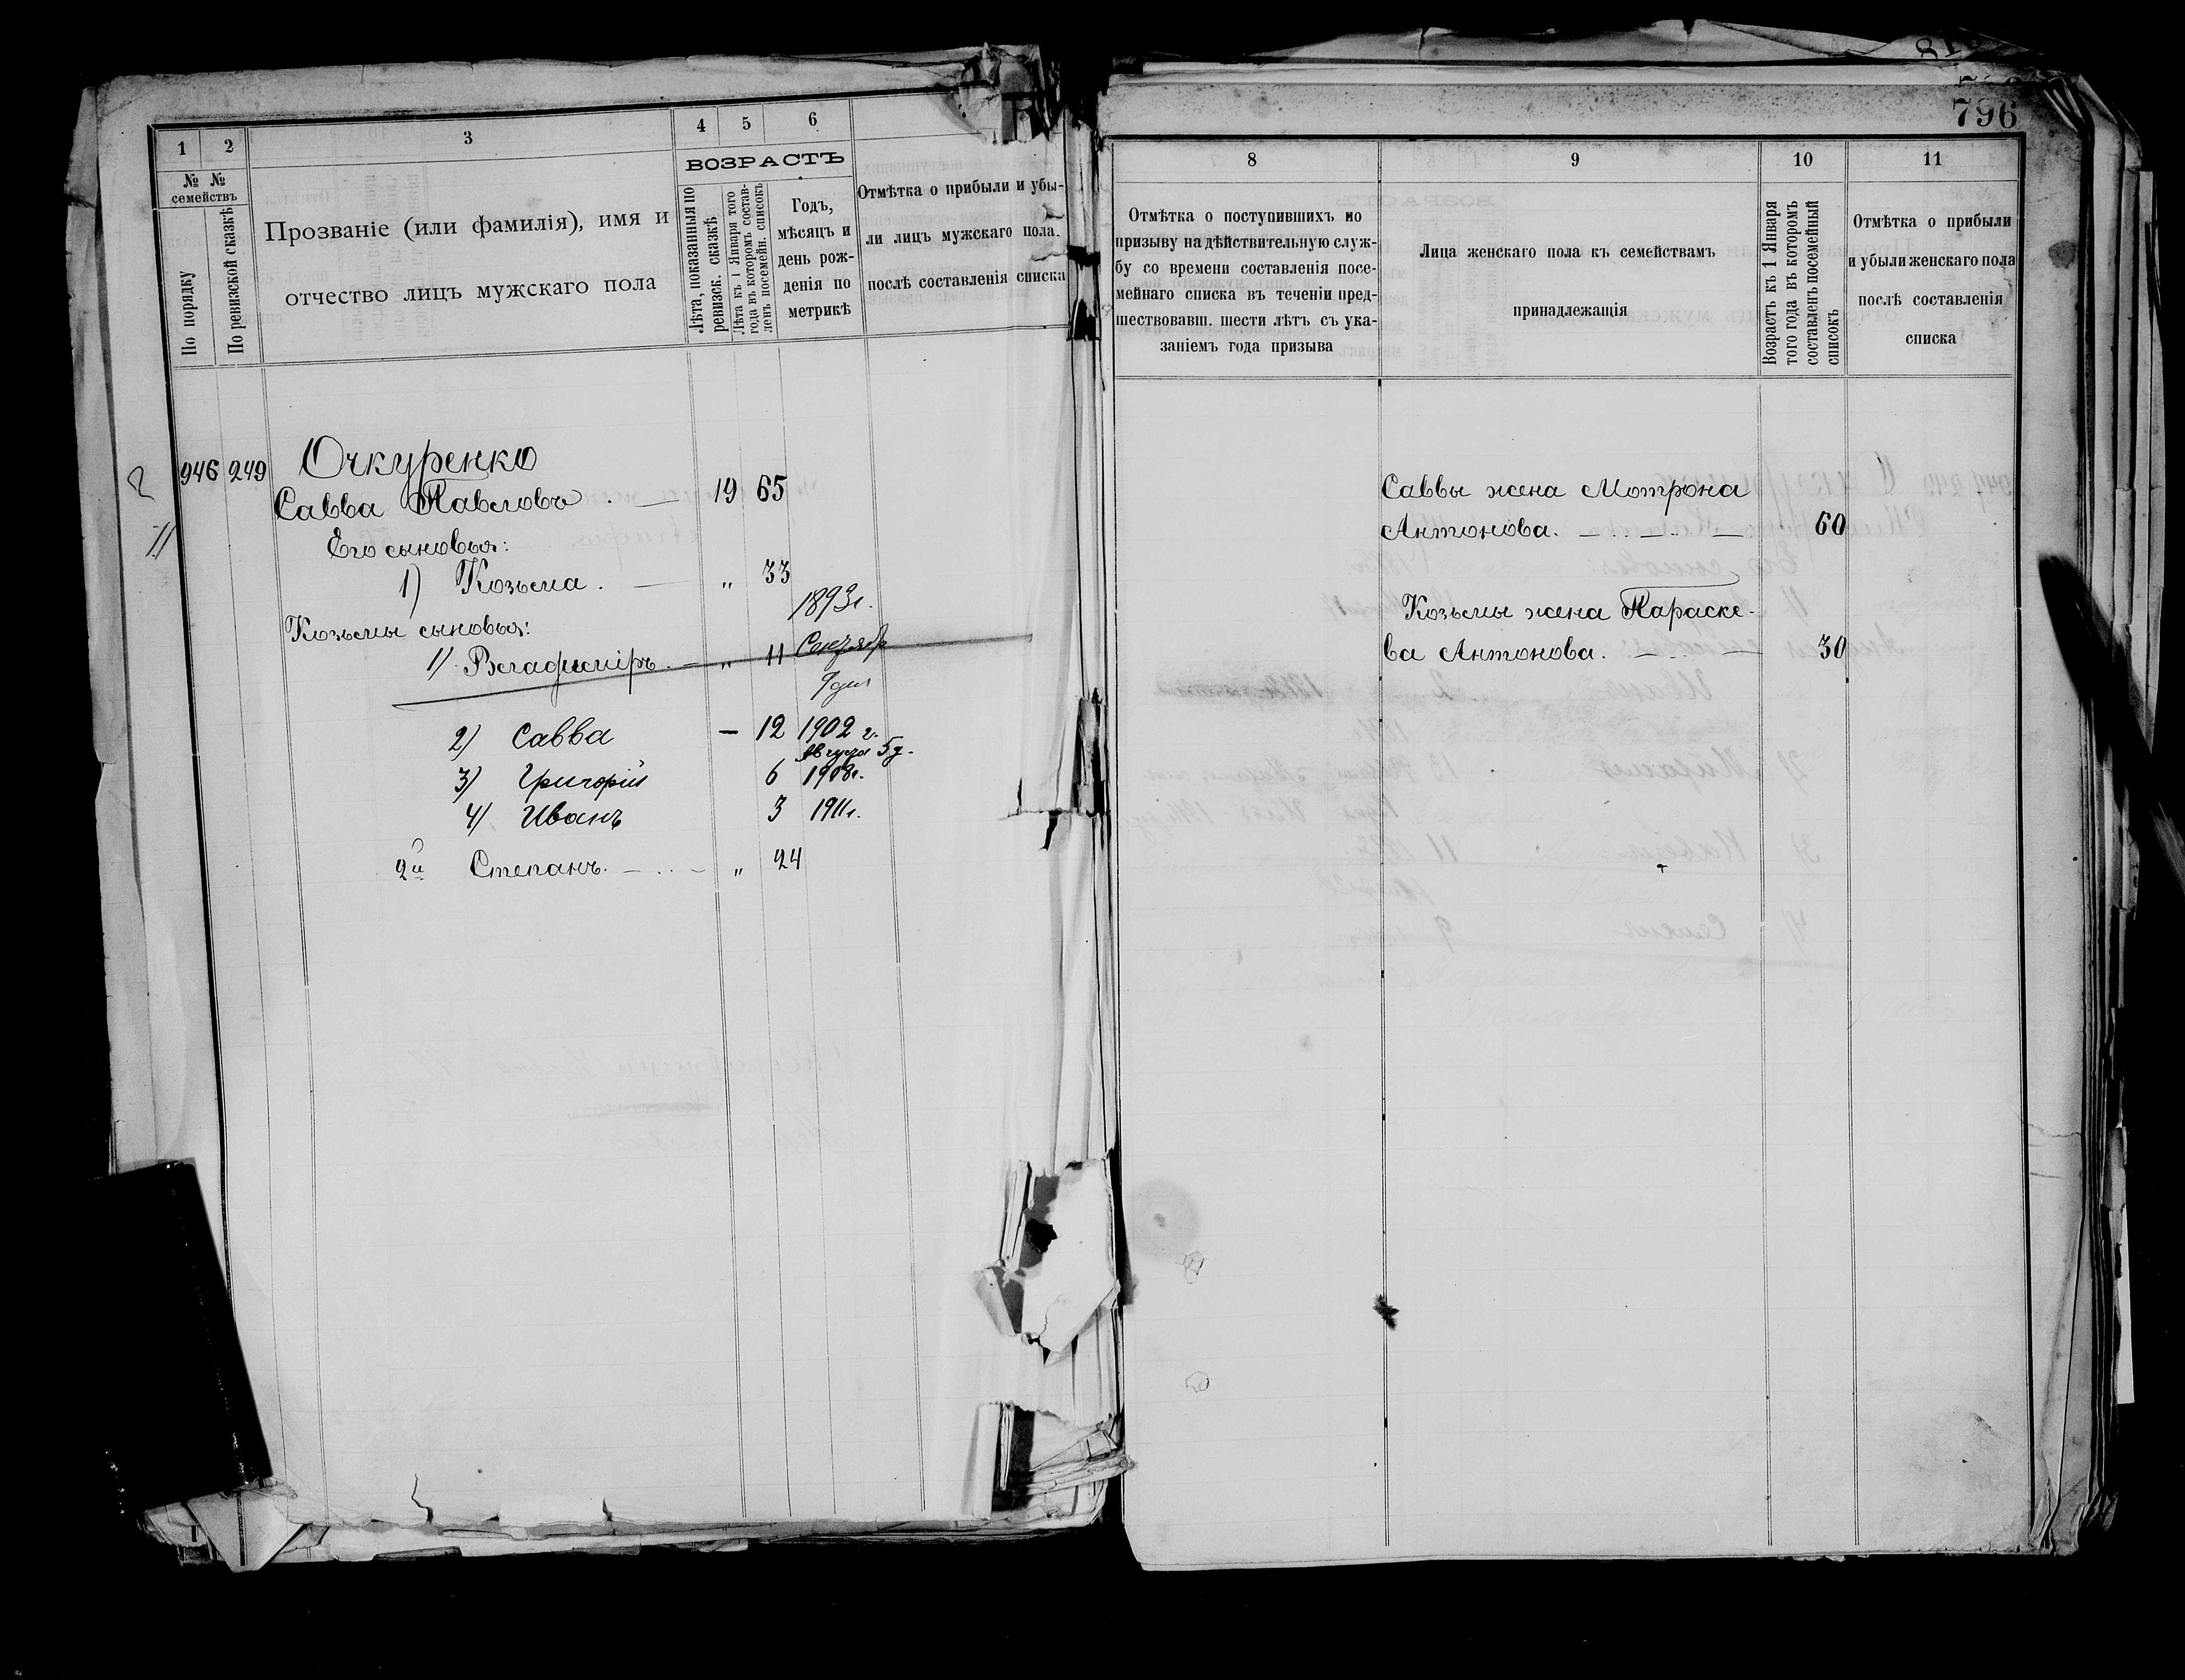 1 2 3 4 5 6
№ № семействъ
По порядку
По ревизской сказкѣ
Прозваніе (или фамилія), имя и
отчество лицъ мужскаго пола
ВОЗРАСТЪ
Лѣта, показанныя по
ревизск. сказкѣ
Лѣта къ 1 Января того
года въ которомъ состав-
ленъ посемейн. списокъ
Годъ,
мѣсяцъ и
день рож-
денія по
метрикѣ
Отмѣтка о прибыли и убы-
ли лицъ мужскаго пола
послѣ составленія списка
946 249 Очкуренко
Савва Павловъ. 19 65
Его сыновья:
1) Козьма. " 33
Козьмы сыновья: 1893г.
1) Владиміръ. " 11
9 дня
2) Савва — 12 1902 г.
августа 5 д.
3) Григорій 6 1908г.
4) Иванъ 3 1911г.
2й Степанъ. " 24
796
8 9 10 11
Отмѣтка о поступившихъ по
призыву на дѣйствительную служ-
бу со времени составленія посе-
мейнаго списка въ теченіи пред-
шествовавш. шести лѣтъ съ ука-
заніемъ года призыва
Лица женскаго пола къ семействамъ
принадлежащія
Возрастъ къ 1 Января
того года въ которомъ
составленъ посемейный
списокъ
Отмѣтка о прибыли
и убыли женскаго пола
послѣ составленія
списка
Саввы жена Мотрона
Антонова. 60
Козьмы жена Параске-
ва Антонова. 30